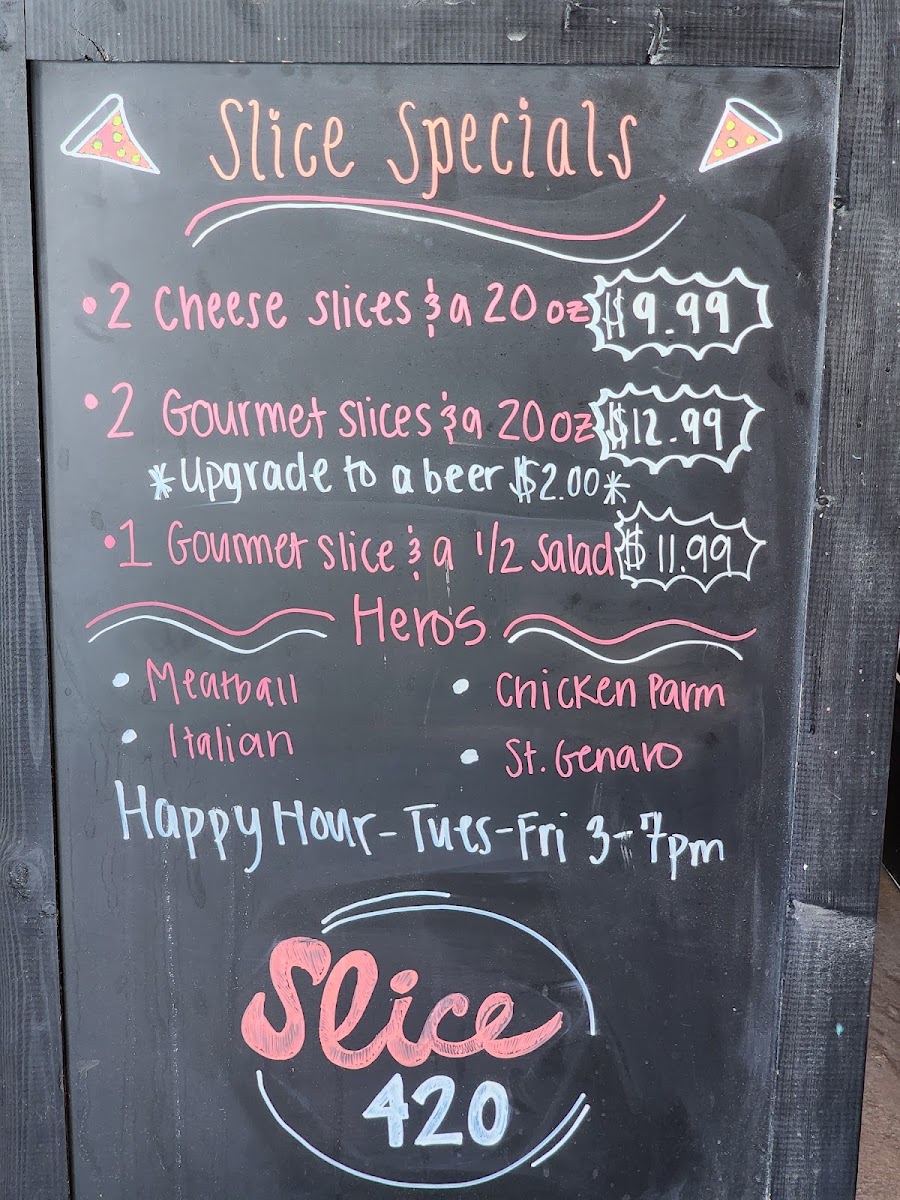 Slice Specials
• 2 Cheese slices & a 20 oz $9.99
• 2 Gourmet slices & a 20 oz $12.99
*Upgrade to a beer $2.00*
• 1 Gourmet slice & a 1/2 Salad $11.99
Heros
• Meatball • Chicken Parm
• Italian • St. Genaro
Happy Hour - Tues - Fri 3-7pm
Slice
420